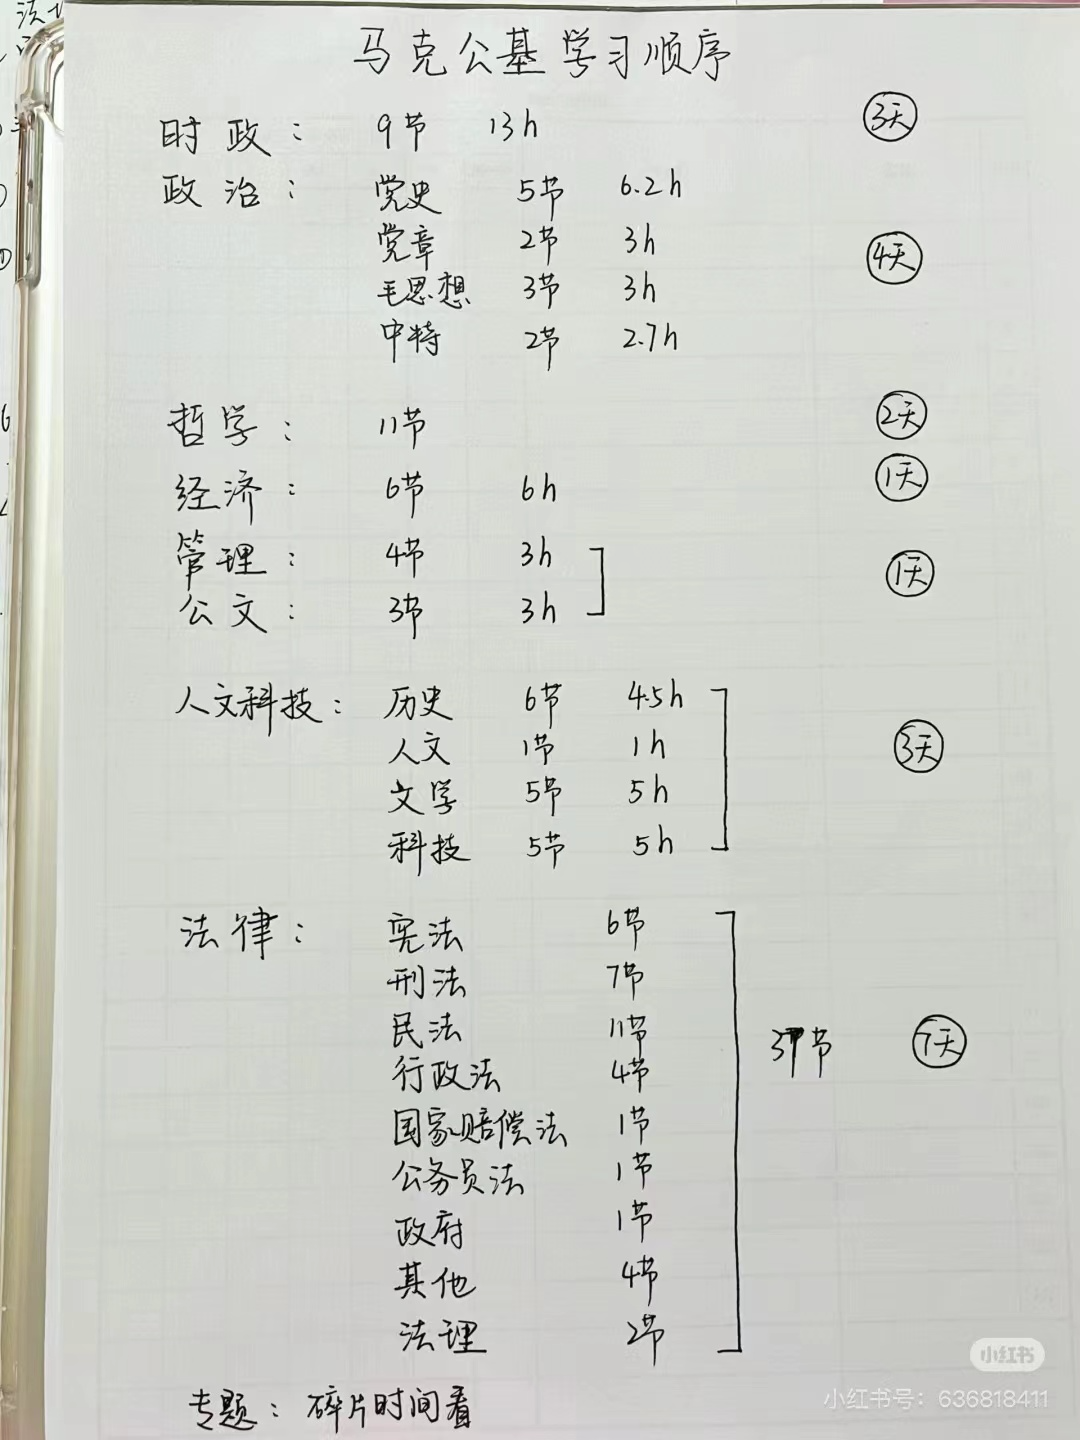 马克公基学习顺序
时政： 9节 13h 3天
政治： 党史 5节 6.2h
党章 2节 3h 4天
毛思想 3节 3h
中特 2节 2.7h
哲学： 11节 2天
经济： 6节 6h 1天
管理： 4节 3h 1天
公文： 3节 3h
人文科技： 历史 6节 4.5h
人文 1节 1h 3天
文学 5节 5h
科技 5节 5h
法律： 宪法 6节
刑法 7节
民法 11节 37节 7天
行政法 4节
国家赔偿法 1节
公务员法 1节
政府 1节
其他 4节
法理 2节
专题：碎片时间看
小红书
小红书号：636818411